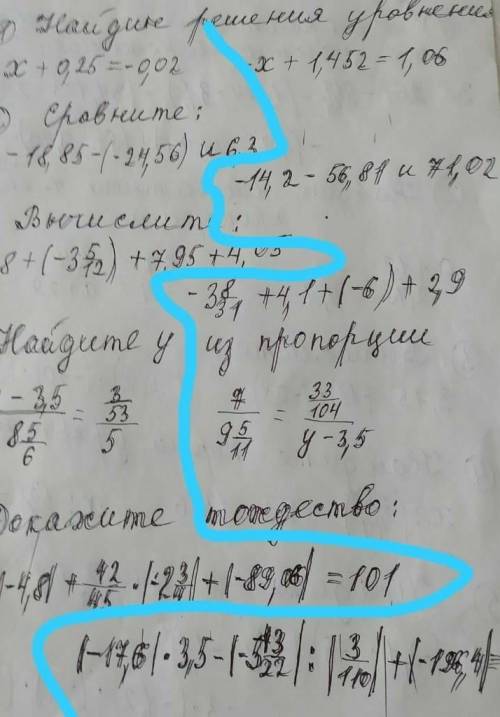 Найдите решения уравнения
x + 0,25 = -0,02   x + 1,452 = 1,06
Сравните:
-18,85-(-24,56) и 6,3
-14,2 - 56,81 и 71,02
Вычислите:
8 + (-3 5/12) + 7,95 + 4,05
-3 8/31 + 4,1 + (-6) + 2,9
Найдите y из пропорции
- 3,5 / 8 5/6 = 3/53 / 5   7 / 9 5/11 = 33/104 / y - 3,5
Докажите тождество:
|-4,8| + 42/45 · |-2 3/4| + |-89,06| = 101
|-17,6| · 3,5 - | : |3/110| + | =